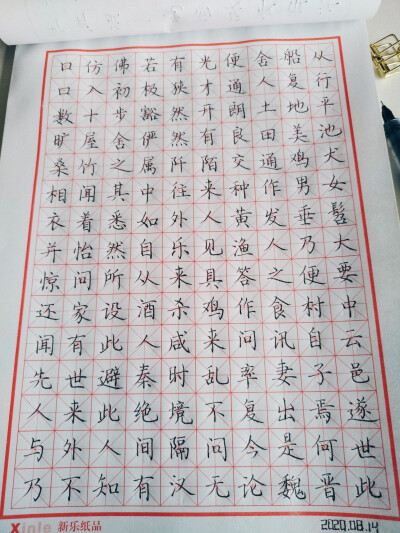 口仿佛若有光便舍船从
口入初极狭才通人复行
数十步豁然开朗土地平
旷屋舍俨然有良田美池
桑竹之属阡陌交通鸡犬
相闻其中往来种作男女
衣着悉如外人黄发垂髫
并怡然自乐见渔人乃大
惊问所从来具答之便要
还家设酒杀鸡作食村中
闻有此人咸来问讯自云
先世避秦时乱率妻子邑
人来此绝境不复出焉遂
与外人间隔问今是何世
乃不知有汉无论魏晋此
Xinle 新乐纸品
2020.08.14